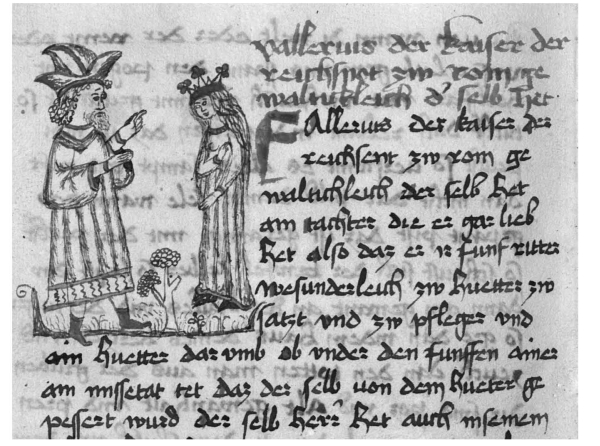 vallerius der kaiser der
reichsnet zw rom ge
waltickleich d' selb het
FAllerius der kaiser der
reichsent zw rom ge
waltichleich der selb het
ain tachter die er gar lieb
het also daz er ir funf ritter
wesunderleich zw huetter zw
satzt vnd zw pfleger vnd
ain huetter dar vmb ob vnder den funffen ainer
ain missetat tet daz der selb von dem hueter ge
pessert wurd der selb herr het auch in seinem